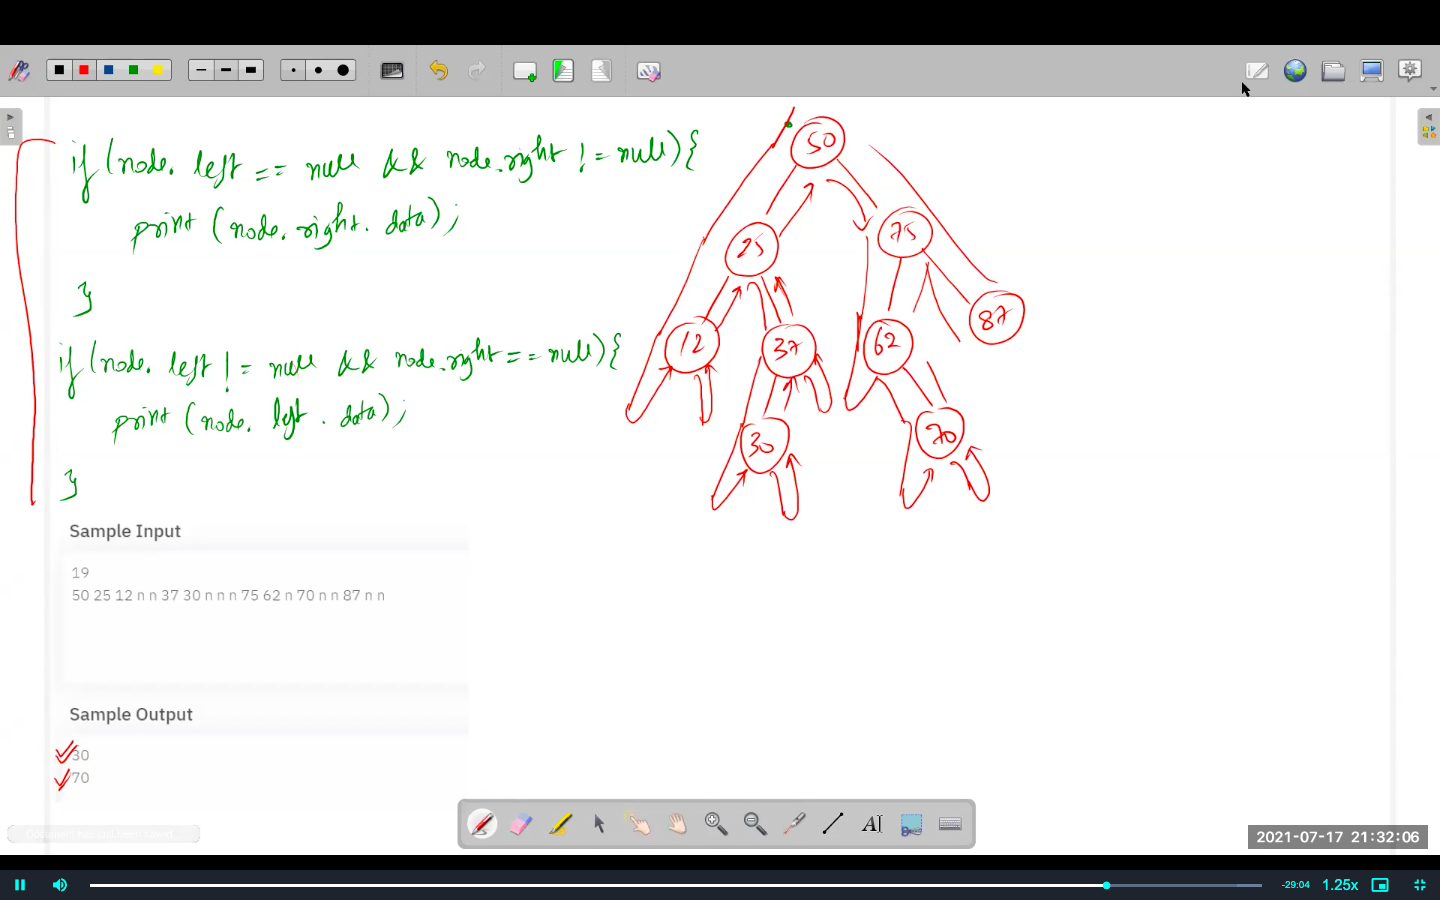 if (node. left == null && node.right != null) {
print (node. right. data);
}
if (node. left != null && node.right == null) {
print (node. left . data);
}
50
25
75
12
37
62
87
30
70
Sample Input
19
50 25 12 n n 37 30 n n n 75 62 n 70 n n 87 n n
Sample Output
30
70
AI
2021-07-17 21:32:06
-29:04 1.25x